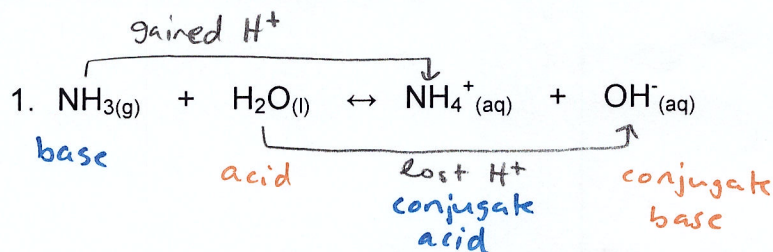 gained H⁺
1. NH₃(g) + H₂O(l) ↔ NH₄⁺(aq) + OH⁻(aq)
base acid lost H⁺ conjugate
conjugate base
acid